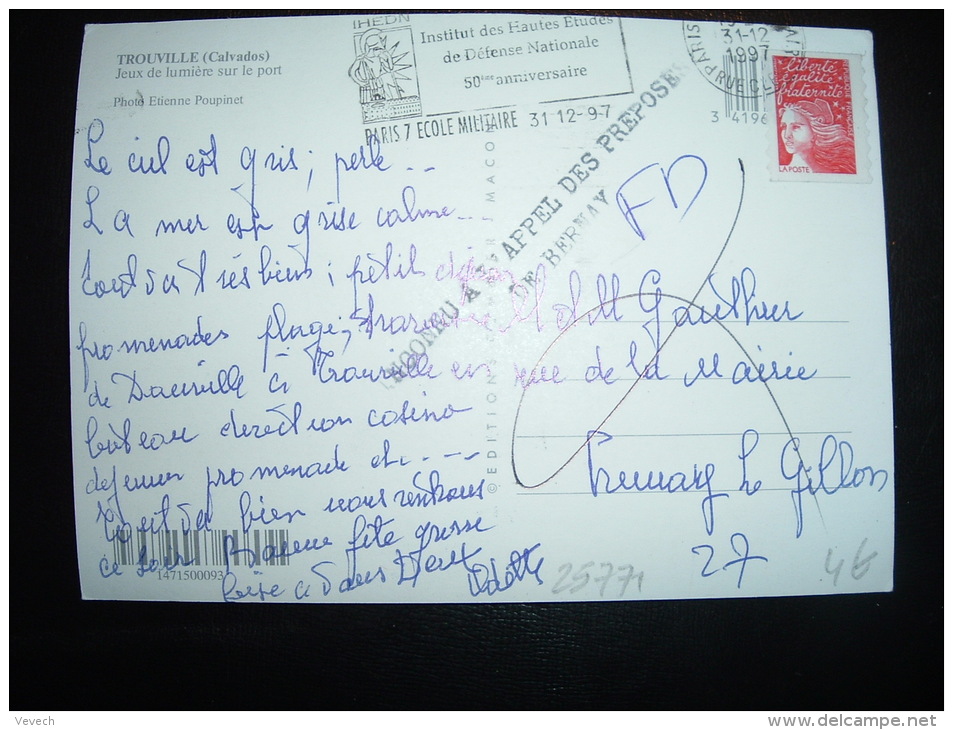 TROUVILLE (Calvados)
Jeux de lumière sur le port
Photo Etienne Poupinet
IHEDN
Institut des Hautes Etudes
de Défense Nationale
50ème anniversaire
PARIS 7 ECOLE MILITAIRE 31 12-9-7
PARIS
31-12
1997
RUE CL
liberté
égalité
fraternité
LA POSTE
3 4196
INCONNU A L'APPEL DES PREPOSES
DE BERNAY
FD
Le ciel est gris, perle ..
La mer est grise calme ...
tout va très bien ; petit
promenades plage,
de Dauville à Trouville en
bateau direction casino
dejeuner promenade etc ----
tout va bien nous rentrons
ce soir Bonne fête grosse
bise à vous Deux Odette
M Mll Gauthier
rue de la Mairie
Le Gillon
27
© EDITIONS
MACON
1471500093
25771
46
Vevech
delcampe.net